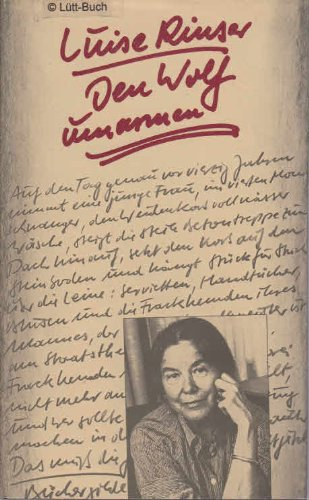 © Lütt-Buch
Luise Rinser
Den Wolf
umarmen
Auf den Tag genau vor vierzig Jahren
nimmt eine junge Frau, im vierten Mon
schwanger, den Weidenkorb voll nasser
Wäsche, steigt die steile Betontreppe zum
Dach hinauf, setzt den Korb auf den
Steinboden und hängt Stück für Stück
über die Leine: Servietten, Handtücher,
Blusen und die Frackhemden ihres
Mannes, der
am Staatsthe
Frackhemden
nicht mehr an
und wer sollte
machen in d
Das muß die
Bücher